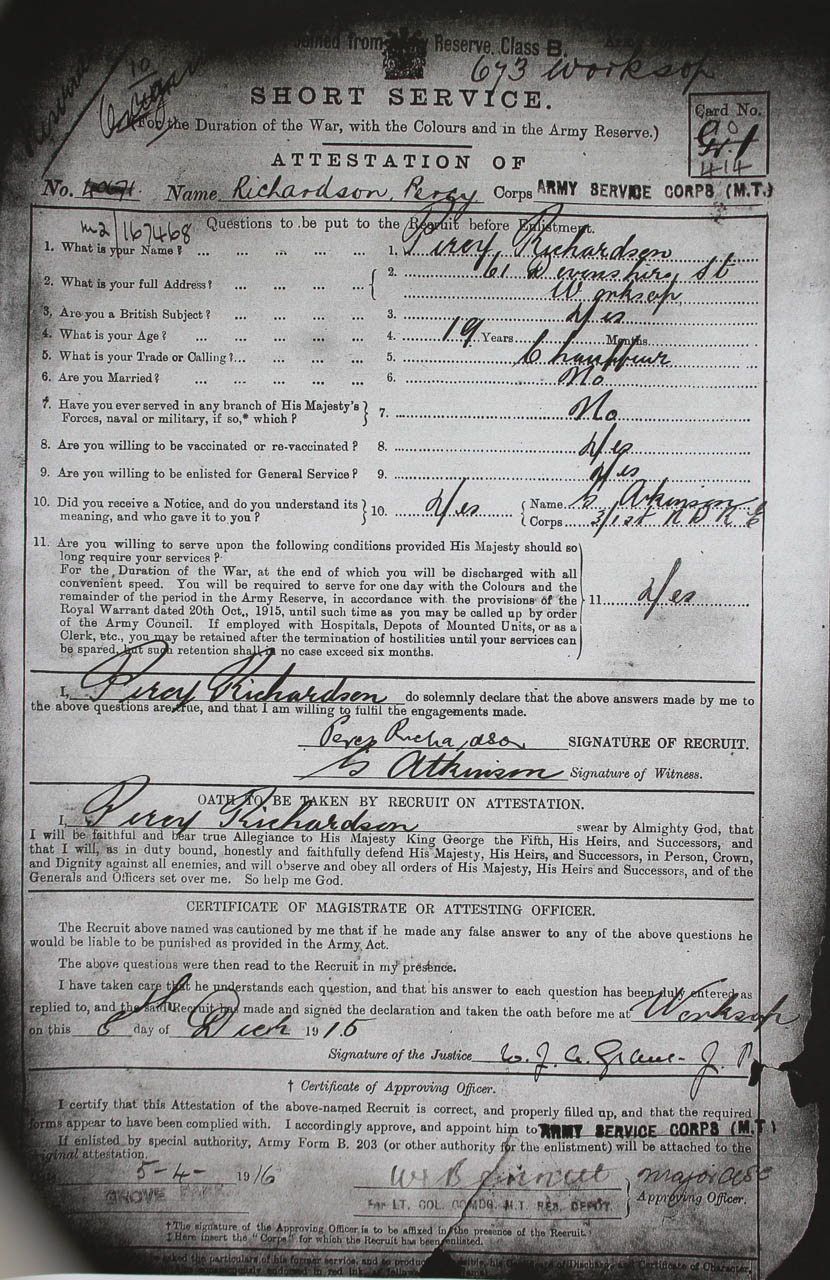 Joined from Reserve, Class B.
10
673 Worksop
SHORT SERVICE.
(For the Duration of the War, with the Colours and in the Army Reserve.)
Card No.
414
ATTESTATION OF
No. Name Richardson, Percy Corps ARMY SERVICE CORPS (M.T.)
M2/167468 Questions to be put to the Recruit before Enlistment.
1. What is your Name? ... ... ... ... 1. Percy Richardson
2. What is your full Address? ... ... ... 2. 61 Devonshire St
Worksop
3. Are you a British Subject? ... ... ... 3. Yes
4. What is your Age? ... ... ... ... 4. 19 Years Months
5. What is your Trade or Calling?... ... ... ... 5. Chauffeur
6. Are you Married? ... ... ... ... 6. No
7. Have you ever served in any branch of His Majesty's
Forces, naval or military, if so,* which? 7. No
8. Are you willing to be vaccinated or re-vaccinated? 8. Yes
9. Are you willing to be enlisted for General Service? 9. Yes
10. Did you receive a Notice, and do you understand its
meaning, and who gave it to you? 10. Yes Name G Atkinson
Corps 3/1st
11. Are you willing to serve upon the following conditions provided His Majesty should so
long require your services?
For the Duration of the War, at the end of which you will be discharged with all
convenient speed. You will be required to serve for one day with the Colours and the
remainder of the period in the Army Reserve, in accordance with the provisions of the
Royal Warrant dated 20th Oct., 1915, until such time as you may be called up by order
of the Army Council. If employed with Hospitals, Depots of Mounted Units, or as a
Clerk, etc., you may be retained after the termination of hostilities until your services can
be spared, but such retention shall in no case exceed six months.
11. Yes
I, Percy Richardson do solemnly declare that the above answers made by me to
the above questions are true, and that I am willing to fulfil the engagements made.
Percy Richardson SIGNATURE OF RECRUIT.
G Atkinson Signature of Witness.
OATH TO BE TAKEN BY RECRUIT ON ATTESTATION.
I, Percy Richardson swear by Almighty God, that
I will be faithful and bear true Allegiance to His Majesty King George the Fifth, His Heirs, and Successors, and
that I will, as in duty bound, honestly and faithfully defend His Majesty, His Heirs, and Successors, in Person, Crown,
and Dignity against all enemies, and will observe and obey all orders of His Majesty, His Heirs and Successors, and of the
Generals and Officers set over me. So help me God.
CERTIFICATE OF MAGISTRATE OR ATTESTING OFFICER.
The Recruit above named was cautioned by me that if he made any false answer to any of the above questions he
would be liable to be punished as provided in the Army Act.
The above questions were then read to the Recruit in my presence.
I have taken care that he understands each question, and that his answer to each question has been duly entered as
replied to, and the said Recruit has made and signed the declaration and taken the oath before me at Worksop
on this 8th day of Dec 1915
Signature of the Justice J. P
† Certificate of Approving Officer.
I certify that this Attestation of the above-named Recruit is correct, and properly filled up, and that the required
forms appear to have been complied with. I accordingly approve, and appoint him to ARMY SERVICE CORPS (M.T.)
If enlisted by special authority, Army Form B. 203 (or other authority for the enlistment) will be attached to the
original attestation.
5-4- 1916 Major ASC
GROVE PARK For LT. COL. COMDG. M.T. RES. DEPOT. Approving Officer.
†The signature of the Approving Officer is to be affixed in the presence of the Recruit.
‡Here insert the "Corps" for which the Recruit has been enlisted.
asked the particulars of his former service, and to produce, if possible, his Certificate of Discharge, and Certificate of Character,